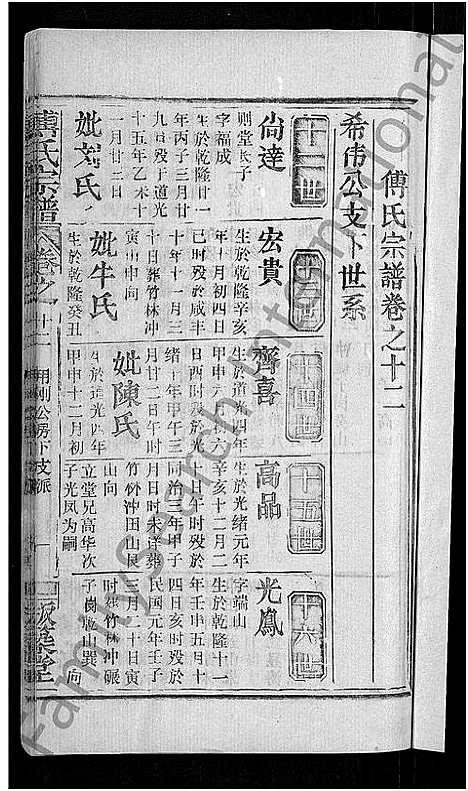 傅氏宗譜卷之十二
希伟公支下世系
十二世
十三世
十四世
十五世
十六世
尚達
則堂長子
字福成
生於乾隆廿一
年丙子三月廿
九日殁于道光
十五年乙未十
一月廿三日
妣刘氏
宏貴
生於乾隆辛亥
年十月初四日
巳时殁於咸丰
十年十一月三
十日葬竹林冲
寅山申向
妣牛氏
生於乾隆癸丑
齊喜
生於道光四年
甲申六月十六
日酉时殁於光
緒廿年甲午三
月廿二日午时
妣陳氏
生於道光四年
甲申十二月初
高品
生於光绪元年
辛亥十二月二
十日午时殁於
同治三年甲子
月日时未详葬
竹林冲田山艮
山向
立堂兄高华次
子光凤为嗣
光鳳
字端山
生於乾隆十一
年壬申五月十
四日亥时殁於
民國元年壬子
三月二十日寅
时葬竹林冲碾
子岗乾山巽向
傅氏宗譜
卷之十二
用則公房下支派
一
版築堂
Familysearch International